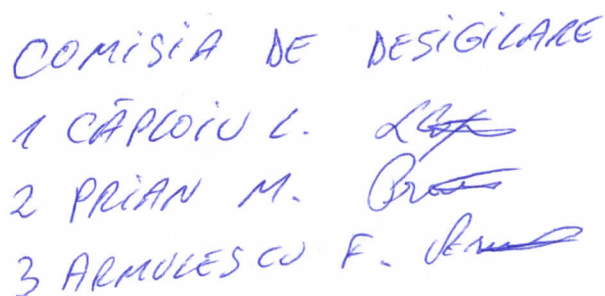 COMISIA DE DESIGILARE
1 CĂPLOIU L.
2 PRIAN M.
3 ARMULESCU F.